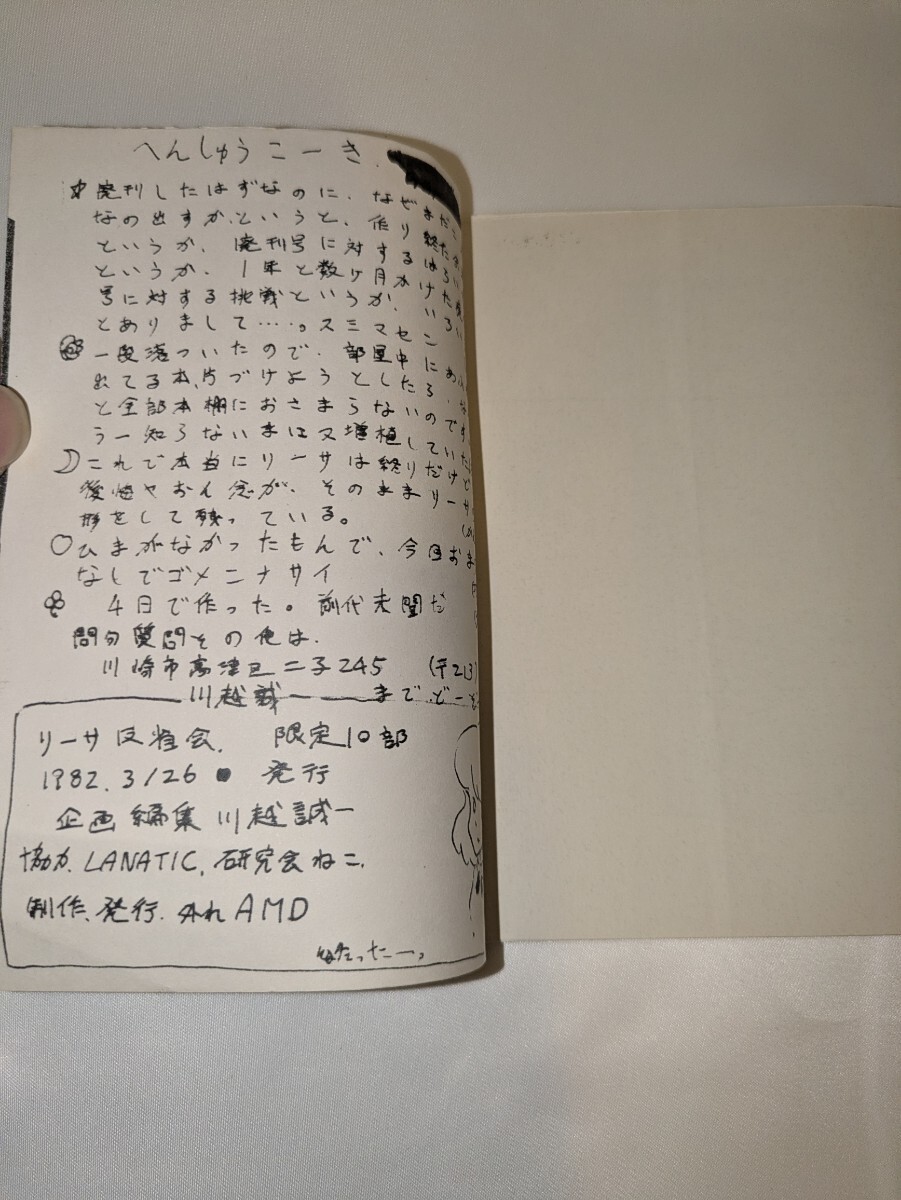 へんしゅうこーき
廃刊したはずなのに、なぜまだこ
なの出すか、というと、作り終た
というか、廃刊号に対する
というか、1年と数ヶ月か
号に対する挑戦というか、
とありまして…。スミマセン
一段落ついたので、部屋中に
出てる本、片づけようとしたら、
と全部本棚におさまらないのです
うー知らないまに又増植していた
これで本当にリーサは終りだけど
後悔やおん念が、そのままリーサ
形をして残っている。
ひまがなかったもんで、今回おま
なしでゴメンナサイ
4日で作った。前代未聞だ
問合質問その他は、
川崎市高津区二子245 (〒213)
川越誠一 まで、どーぞ
リーサ反省会、 限定10部
1982.3/26 発行
企画編集 川越誠一
協力、LANATIC、研究会ねこ、
制作、発行、外れAMD